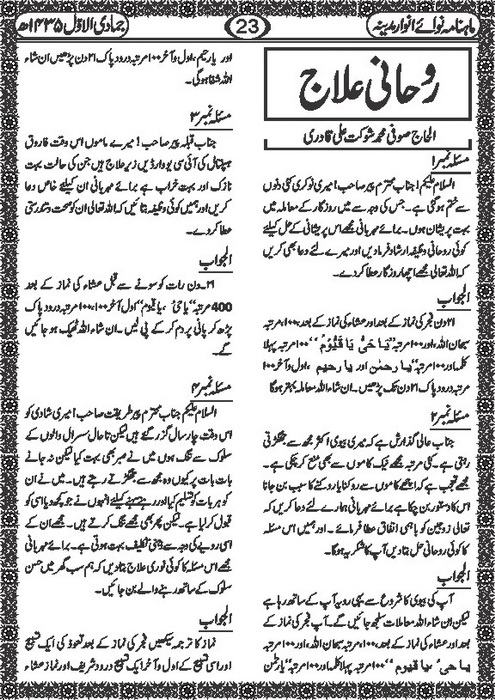 ماہنامہ نوائے انوار مدینہ
23
جمادی الاوّل ۱۴۳۵ھ
روحانی علاج
الحاج صوفی محمد شوکت علی قادری
مسئلہ نمبر ۱
السلام علیکم! جناب محترم پیر صاحب! میری نوکری کئی دنوں
سے ختم ہو گئی ہے۔ جس کی وجہ سے میں روزگار کے معاملہ میں
بہت پریشان ہوں۔ برائے مہربانی مجھے اس پریشانی کے حل کیلئے
کوئی روحانی وظیفہ ارشاد فرما دیں اور میرے لئے دعا بھی کریں
کہ اللہ تعالیٰ مجھے اچھا روزگار عطا کر دے۔
الجواب
۲۱ دن فجر کی نماز کے بعد اور عشاء کی نماز کے بعد، ۱۰۰ مرتبہ
سبحان اللہ، اور ۱۰۰ مرتبہ ”یا حی یا قیوم“ ۱۰۰ مرتبہ پہلا
کلمہ اور ۱۰۰ مرتبہ ”یا رحمن اور یا رحیم“، اول و آخر ۱۰۰
مرتبہ درود پاک ۲۱ دن تک پڑھیں۔ ان شاء اللہ معاملہ بہتر ہوگا
مسئلہ نمبر ۲
جناب عالی گزارش ہے کہ میری بیوی اکثر مجھ سے جھگڑتی
رہتی ہے۔ کئی مرتبہ مجھے نیک کاموں سے بھی منع کر چکی ہے۔
مجھے تعجب ہے کہ اچھے کاموں سے روکنا یا روکنے کا سبب بن جانا
اس کا دستور بن چکا ہے برائے مہربانی ہمارے لئے دعا کریں کہ
تعالیٰ زوجین کو باہمی اتفاق عطا فرمائے۔ اور ہمیں اس مسئلہ
کا کوئی روحانی حل بتا دیں آپ کا شکریہ ہوگا۔
الجواب
آپ کی بیوی کا شروع سے یہی رویہ آپ کے ساتھ رہا ہے
لیکن ان شاء اللہ معاملات سلجھ جائیں گے۔ آپ فجر کی نماز کے
بعد اور عشاء کی نماز کے بعد، ۱۰۰ مرتبہ سبحان اللہ، اور ۱۰۰ مرتبہ
یا حی یا قیوم“ ۱۰۰ مرتبہ پہلا کلمہ اور ۱۰۰ مرتبہ ”یا رحمن
اور یا رحیم، اول و آخر ۱۰۰ مرتبہ درود پاک ۲۱ دن پڑھیں ان شاء
اللہ شفا ہوگی۔
مسئلہ نمبر ۳
جناب قبلہ پیر صاحب! میرے ماموں اس وقت فاروق
ہسپتال کی آئی سی یو وارڈ میں زیر علاج ہیں جن کی حالت بہت
نازک اور بہت خراب ہے برائے مہربانی ان کیلئے خاص دعا
کریں اور ہمیں کوئی وظیفہ بتائیں کہ اللہ تعالیٰ ان کو صحت و تندرستی
عطا کر دے۔
الجواب
۲۱۔ دن رات کو سونے سے قبل عشاء کی نماز کے بعد
400 مرتبہ ”یا حی، یا قیوم“ اول آخر ۱۰۰، ۱۰۰ مرتبہ درود پاک
پڑھ کر پانی پر دم کر کے پی لیں۔ ان شاء اللہ ٹھیک ہو جائیں
گے۔
مسئلہ نمبر ۴
السلام علیکم جناب محترم پیر طریقت صاحب! میری شادی کو
اس وقت چار سال گزر گئے ہیں لیکن تا حال سسرال والوں کے
سلوک سے تنگ ہوں میں نے صبر بھی بہت کیا لیکن نہ جانے
بات بات پر کیوں وہ مجھ سے جھگڑتے رہتے ہیں۔ میں نے ان
کو ہر بات کو تسلیم کیا اور رہے سہنے کیلئے انہوں نے جو کچھ دیا اسی کو
قبول کر لیا ہے۔ لیکن پھر بھی مجھے تنگ کرتے ہیں۔ میں ان کے
اسی رویے کی وجہ سے ذہنی تکلیف بہت ہوتی ہے۔ برائے مہربانی
مجھے اس مسئلہ کا کوئی فوری علاج بتا دیں کہ ہم سب گھر میں حسن
سلوک کے ساتھ رہنے والے بن جائیں۔
الجواب
نماز کا ترجمہ سیکھیں فجر کی نماز کے بعد تعوذ کی ایک تسبیح
اور اسی تسبیح کے اول و آخر ایک تسبیح درود شریف اور نماز عشاء